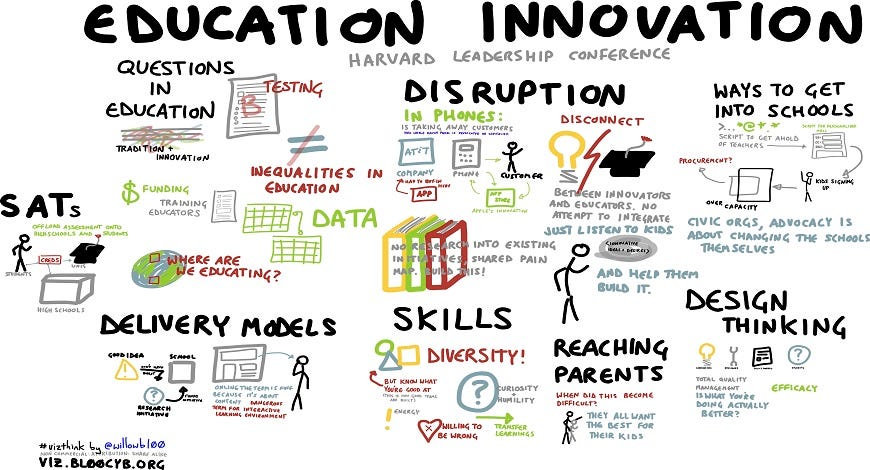 EDUCATION INNOVATION
HARVARD LEADERSHIP CONFERENCE
QUESTIONS
IN
EDUCATION
TRADITION +
INNOVATION
B
TESTING
INEQUALITIES IN
EDUCATION
$ FUNDING
TRAINING
EDUCATORS
DATA
WHERE ARE
WE EDUCATING?
SATs
OFFLOAD ASSESSMENT ONTO
HIGHSCHOOLS AND STUDENTS
STUDENTS
CREDS
UNIS
HIGH SCHOOLS
DISRUPTION
IN PHONES:
IS TAKING AWAY CUSTOMERS
AT&T
COMPANY
PHONE
CUSTOMER
APP
APP
STORE
APPLE'S INNOVATION
DISCONNECT
BETWEEN INNOVATORS
AND EDUCATORS. NO
ATTEMPT TO INTEGRATE
JUST LISTEN TO KIDS
NO RESEARCH INTO EXISTING
INITIATIVES. SHARED PAIN
MAP. BUILD THIS!
AND HELP THEM
BUILD IT.
WAYS TO GET
INTO SCHOOLS
SCRIPT TO GET AHOLD
OF TEACHERS
PROCUREMENT?
OVER CAPACITY
KIDS SIGNING
UP
CIVIC ORGS, ADVOCACY IS
ABOUT CHANGING THE SCHOOLS
THEMSELVES
DELIVERY MODELS
GOOD IDEA
SCHOOL
RESEARCH
INITIATIVE
ONLINE THE TERM IS FINE
BECAUSE IT'S ABOUT
CONTENT DANGEROUS
TERM FOR INTERACTIVE
LEARNING ENVIRONMENT
SKILLS
DIVERSITY!
BUT KNOW WHAT
YOU'RE GOOD AT
! ENERGY
?
CURIOSITY
+
HUMILITY
WILLING TO
BE WRONG
TRANSFER
LEARNINGS
REACHING
PARENTS
WHEN DID THIS BECOME
DIFFICULT?
THEY ALL WANT
THE BEST FOR
THEIR KIDS
DESIGN
THINKING
TOTAL QUALITY
MANAGEMENT
IS WHAT YOU'RE
DOING ACTUALLY
BETTER?
EFFICACY
#vizthink by @willowbl00
NON COMMERCIAL ATTRIBUTION SHARE ALIKE
VIZ.BL00CYB.ORG